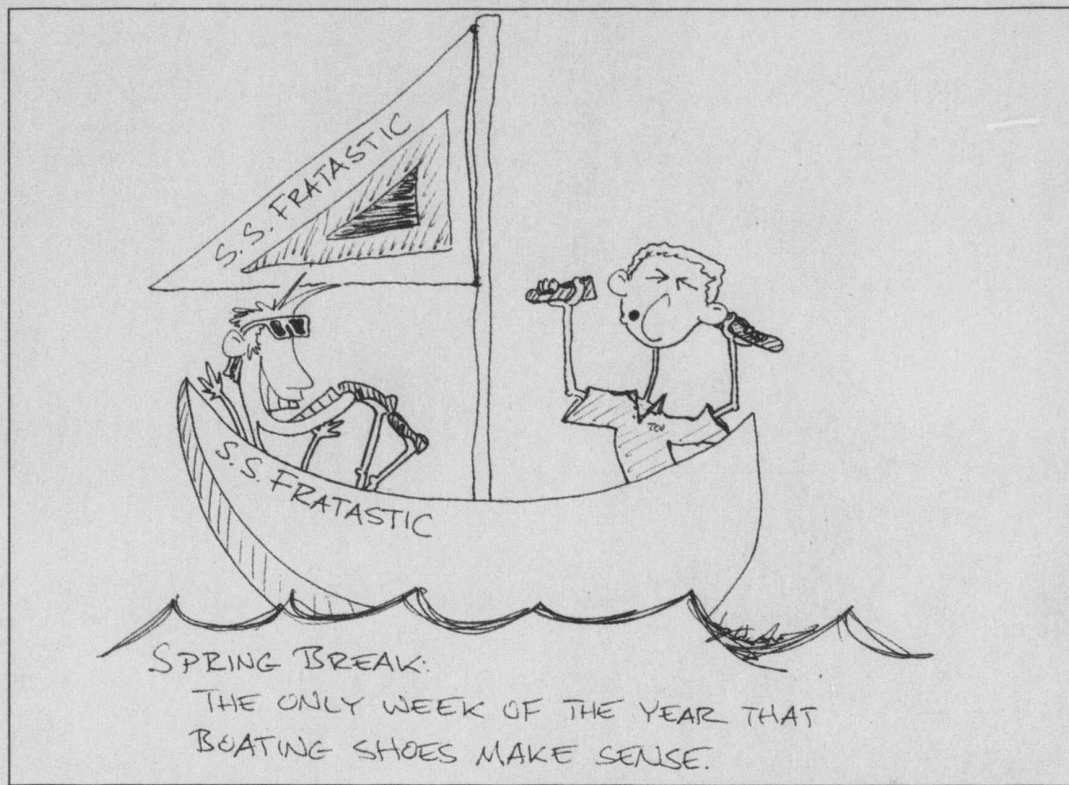 S.S. FRATASTIC
TCU
S.S. FRATASTIC
SPRING BREAK:
THE ONLY WEEK OF THE YEAR THAT
BOATING SHOES MAKE SENSE.